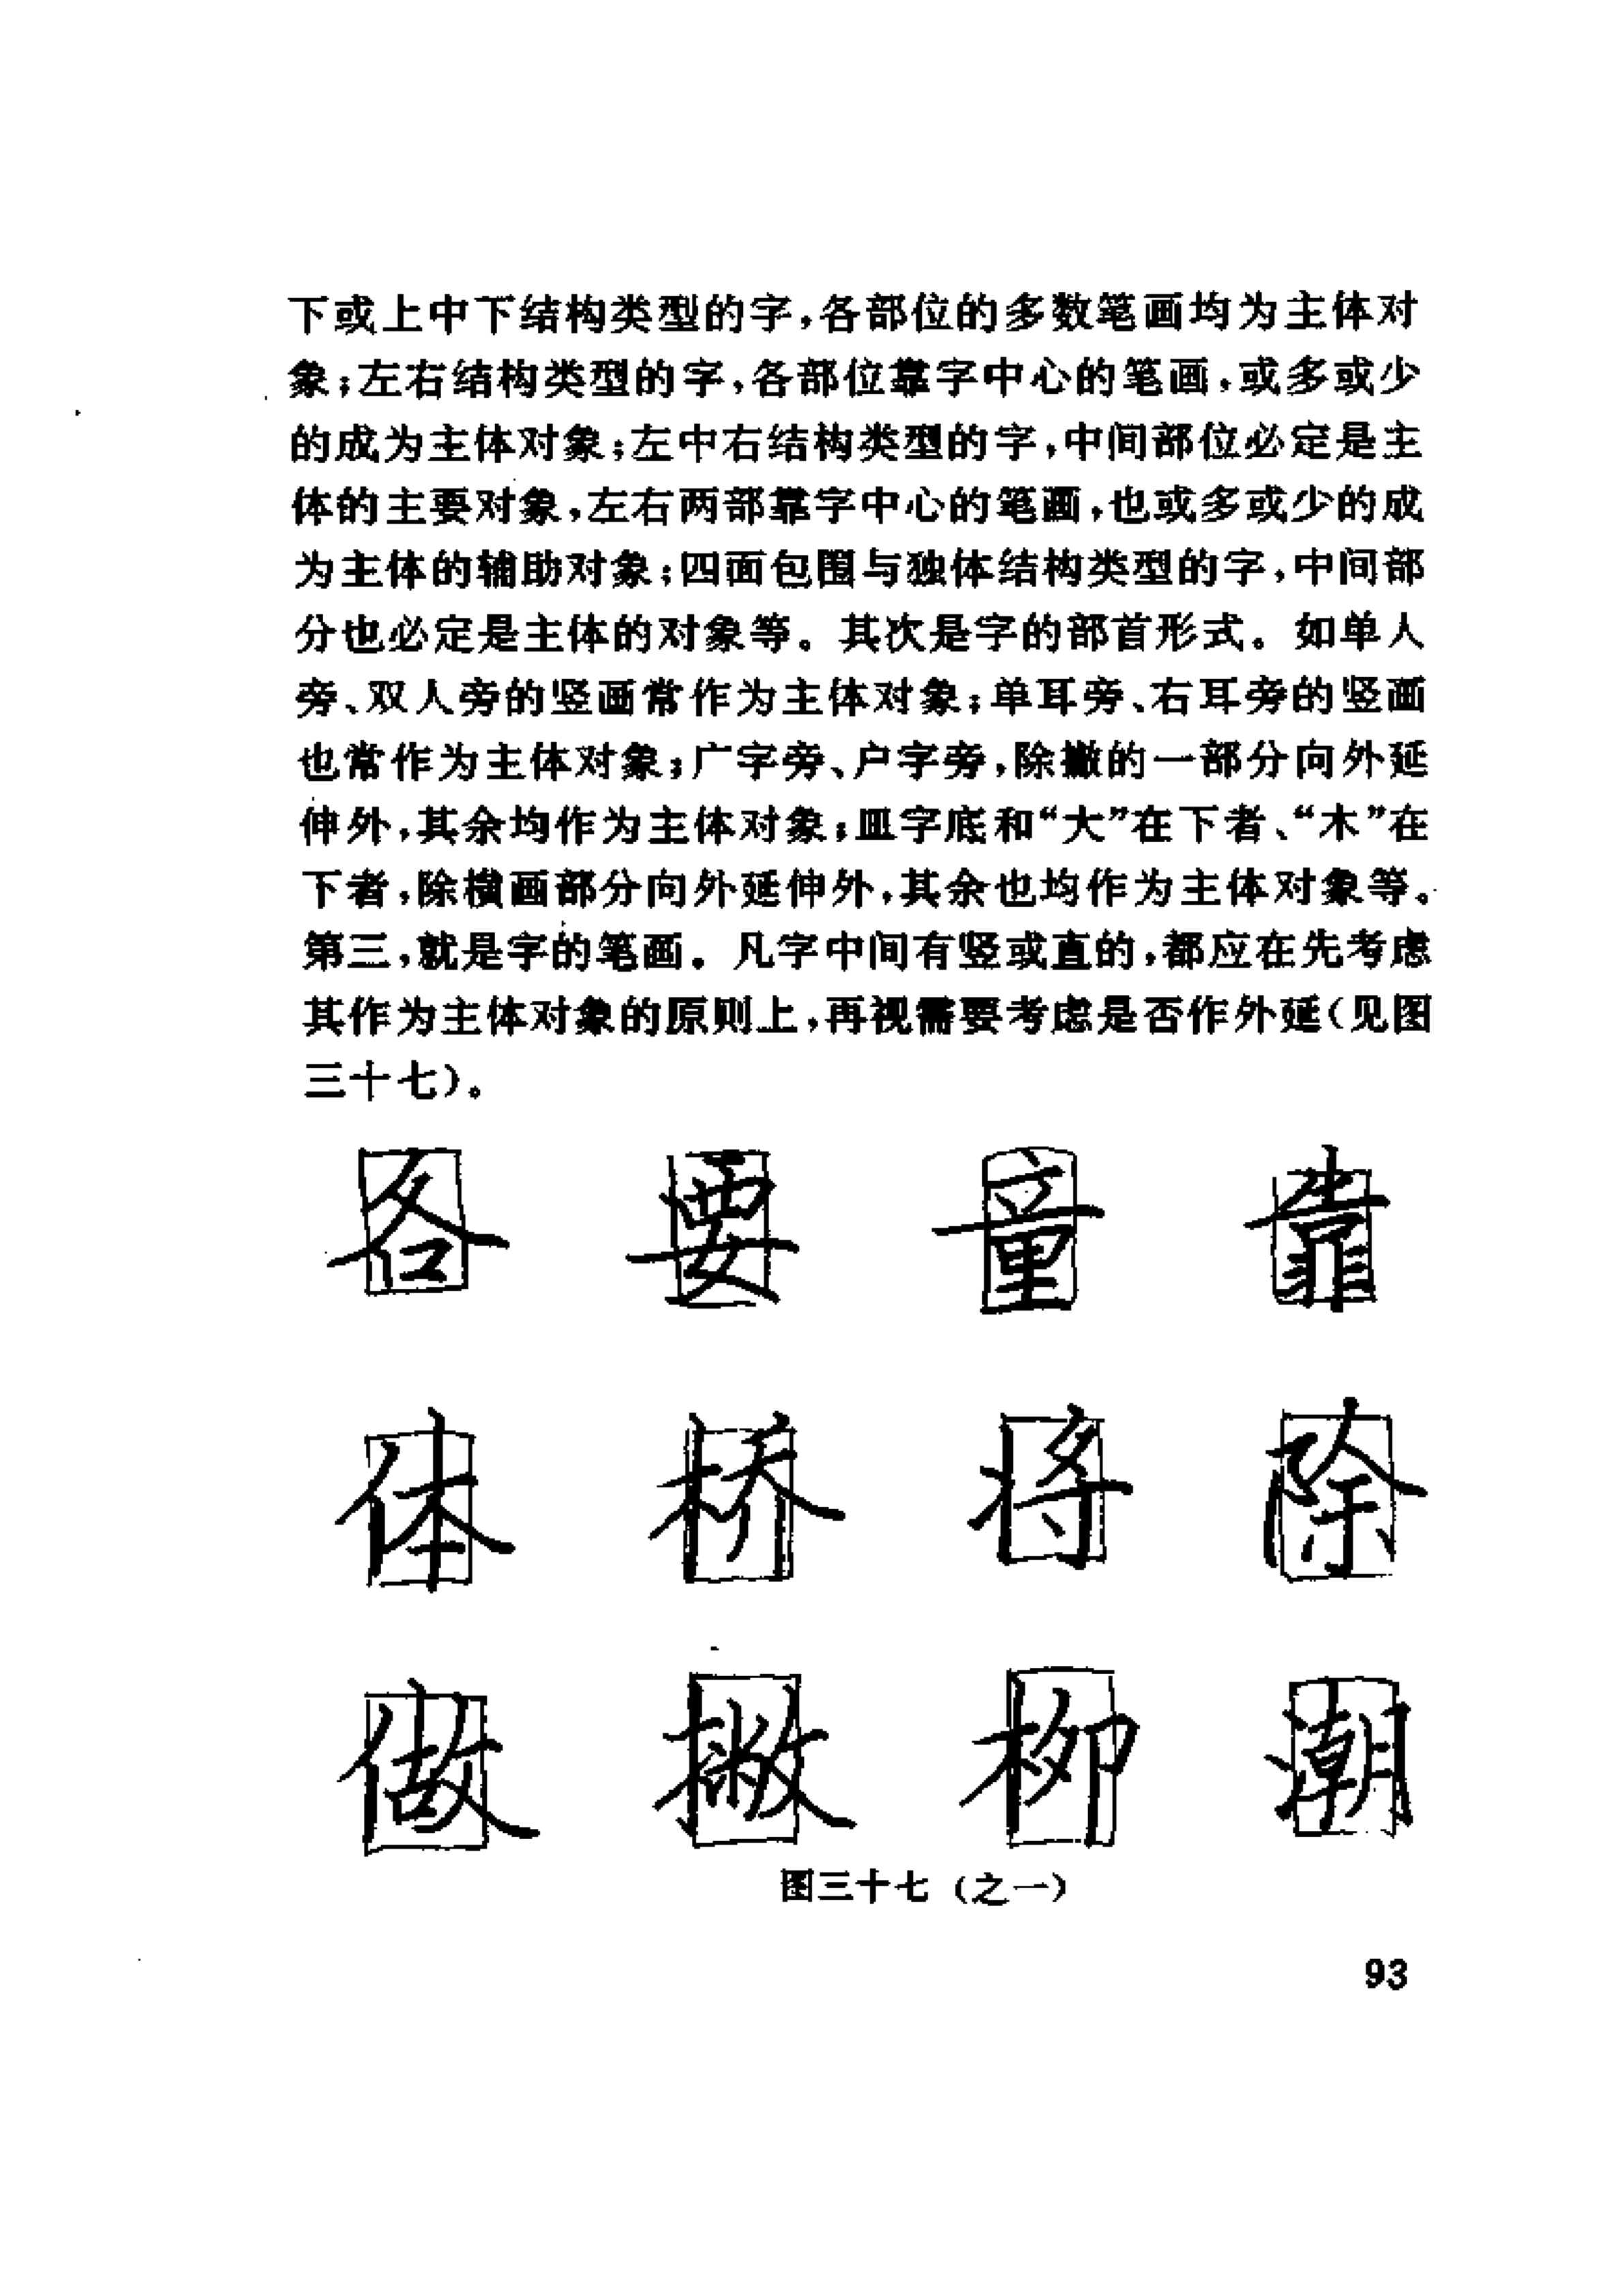 下或上中下结构类型的字，各部位的多数笔画均为主体对
象；左右结构类型的字，各部位靠字中心的笔画，或多或少
的成为主体对象；左中右结构类型的字，中间部位必定是主
体的主要对象，左右两部靠字中心的笔画，也或多或少的成
为主体的辅助对象；四面包围与独体结构类型的字，中间部
分也必定是主体的对象等。其次是字的部首形式。如单人
旁、双人旁的竖画常作为主体对象；单耳旁、右耳旁的竖画
也常作为主体对象；广字旁、户字旁，除撇的一部分向外延
伸外，其余均作为主体对象；皿字底和“大”在下者、“木”在
下者，除横画部分向外延伸外，其余也均作为主体对象等。
第三，就是字的笔画。凡字中间有竖或直的，都应在先考虑
其作为主体对象的原则上，再视需要考虑是否作外延（见图
三十七）。
各 要 童 靠
体 桥 将 除
做 撇 柳 潮
图三十七（之一）
93